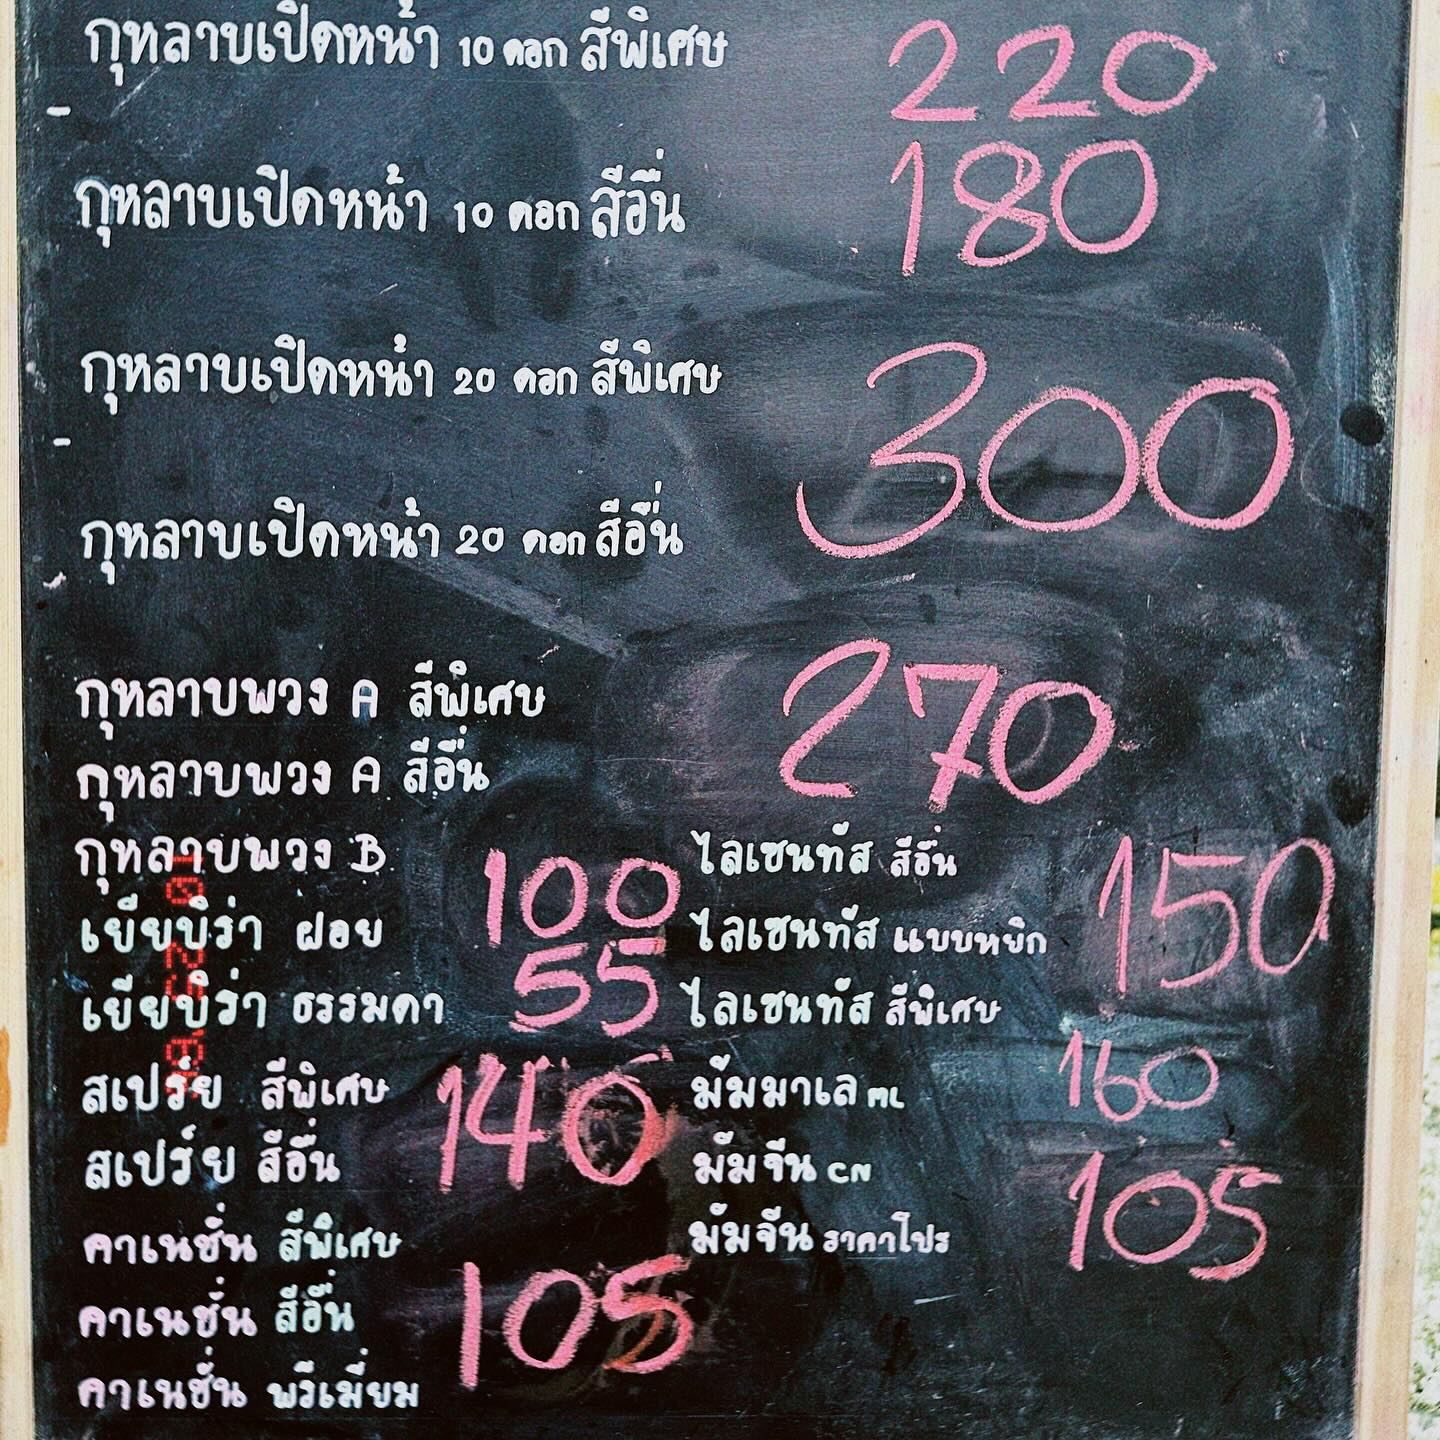 กุหลาบเปิดหน้า 10 ดอก สีพิเศษ 220
-
กุหลาบเปิดหน้า 10 ดอก สีอื่น 180
กุหลาบเปิดหน้า 20 ดอก สีพิเศษ 300
-
กุหลาบเปิดหน้า 20 ดอก สีอื่น
กุหลาบพวง A สีพิเศษ 270
กุหลาบพวง A สีอื่น
กุหลาบพวง B
เยียบิร่า ฝอย 100
เยียบิร่า ธรรมดา 55
สเปรย์ สีพิเศษ 140
สเปรย์ สีอื่น
คาเนชั่น สีพิเศษ
คาเนชั่น สีอื่น 105
คาเนชั่น พรีเมี่ยม
ไลเซนทัส สีอื่น 150
ไลเซนทัส แบบหยิก
ไลเซนทัส สีพิเศษ
มัมมาเล ML 160
มัมจีน CN 105
มัมจีน ราคาโปร